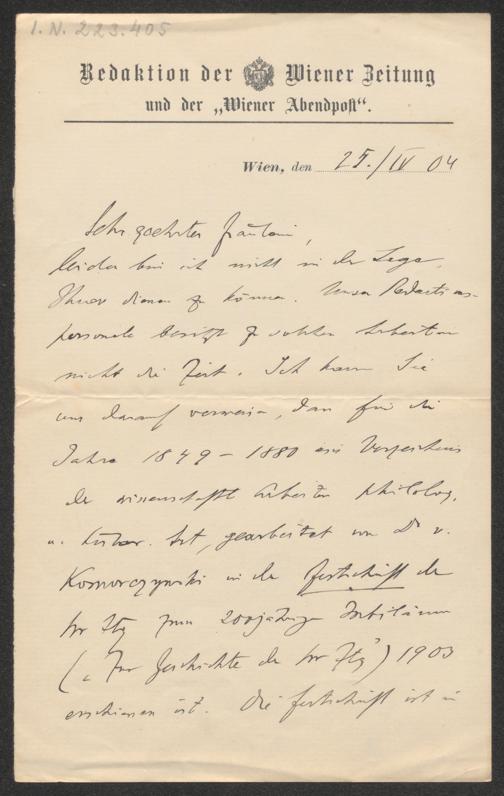 I. N. 223.405
Redaktion der Wiener Zeitung
und der „Wiener Abendpost“.
Wien, den 25./IV 04
Sehr geehrtes Fräulein,
leider bin ich nicht in der Lage,
Ihnen dienen zu können. Unser Redactions-
personale besitzt zu solchen Arbeiten
nicht die Zeit. Ich kann Sie
nur darauf verweisen, dass für die
Jahre 1849 – 1880 ein Verzeichnis
der wissenschaftl Arbeiten philolog.
u. histor. Art, gearbeitet von Dr v.
Komorzynski in der Festschrift der
Wr Ztg zum 200jährigen Jubiläum
(„Zur Geschichte der Wr Ztg“) 1903
erschienen ist. Die Festschrift ist in